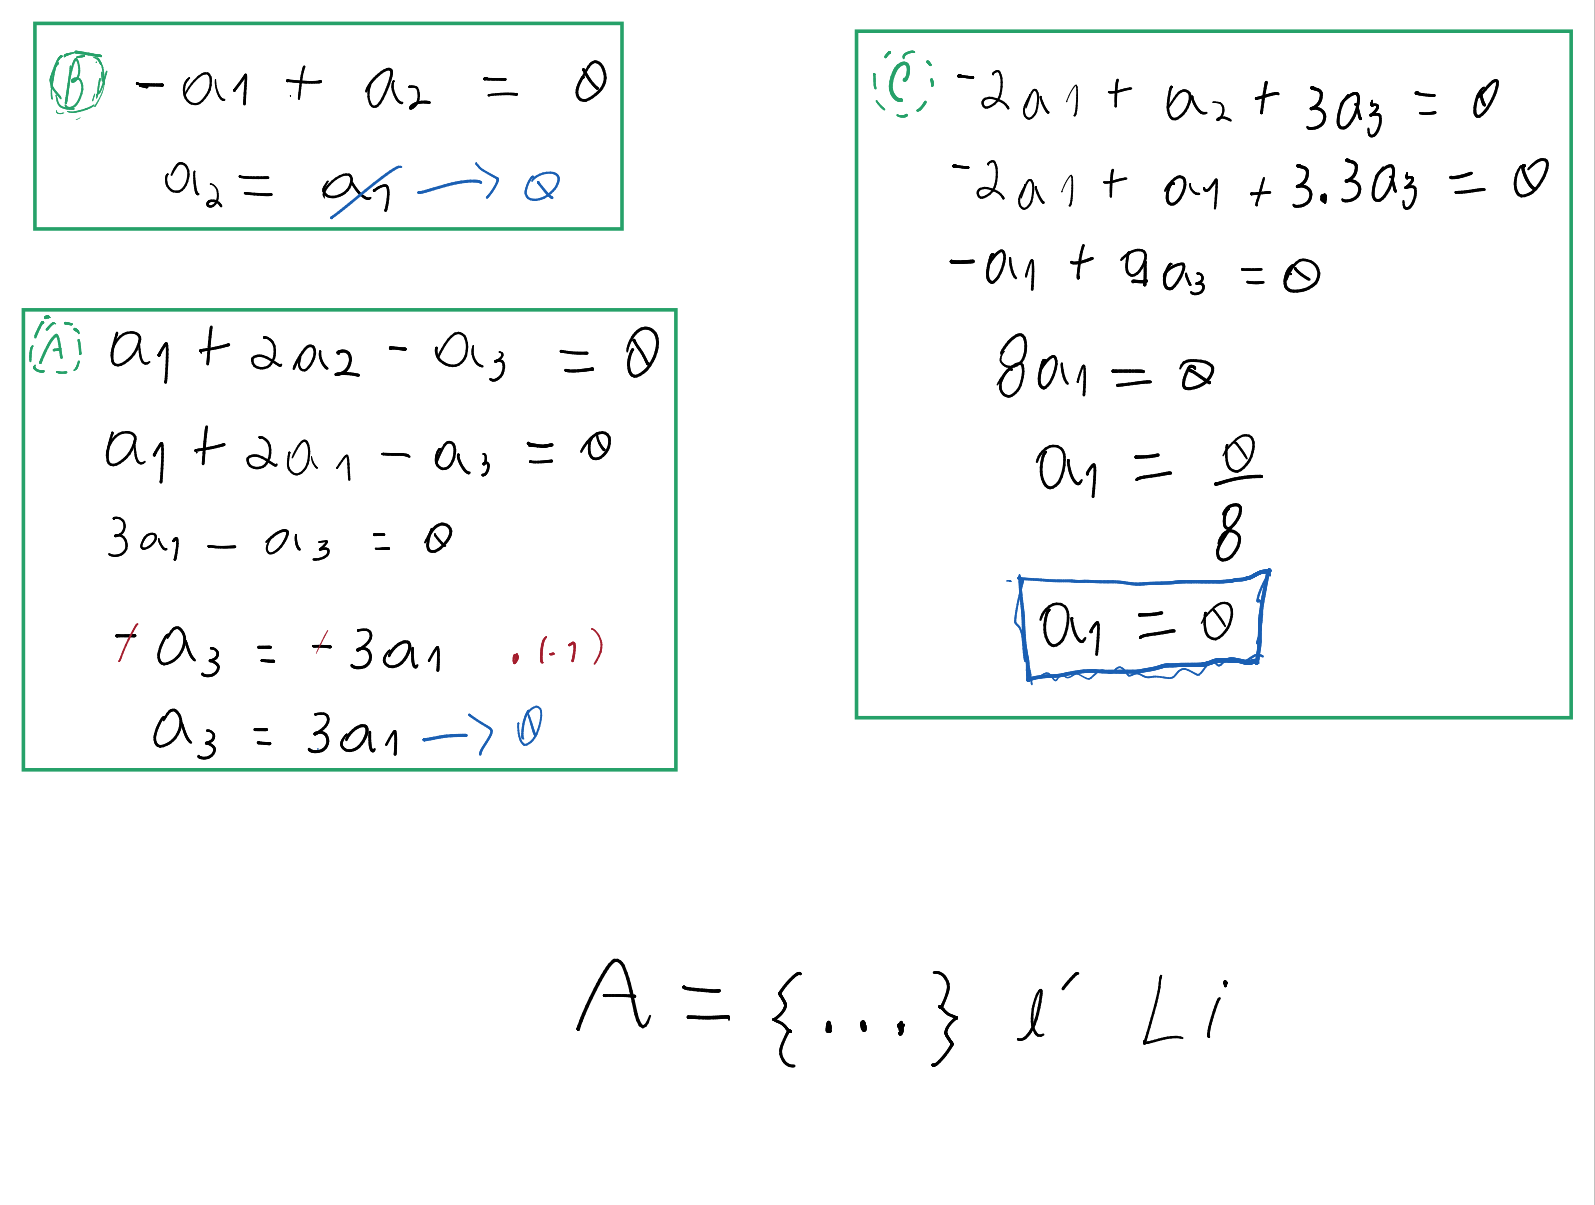 B -a1 + a2 = 0
a2 = a1 → 0
A a1 + 2a2 - a3 = 0
a1 + 2a1 - a3 = 0
3a1 - a3 = 0
- a3 = - 3a1 .(-1)
a3 = 3a1 → 0
C -2a1 + a2 + 3a3 = 0
-2a1 + a1 + 3.3a3 = 0
-a1 + 9a3 = 0
8a1 = 0
a1 = 0/8
a1 = 0
A = {...} é Li